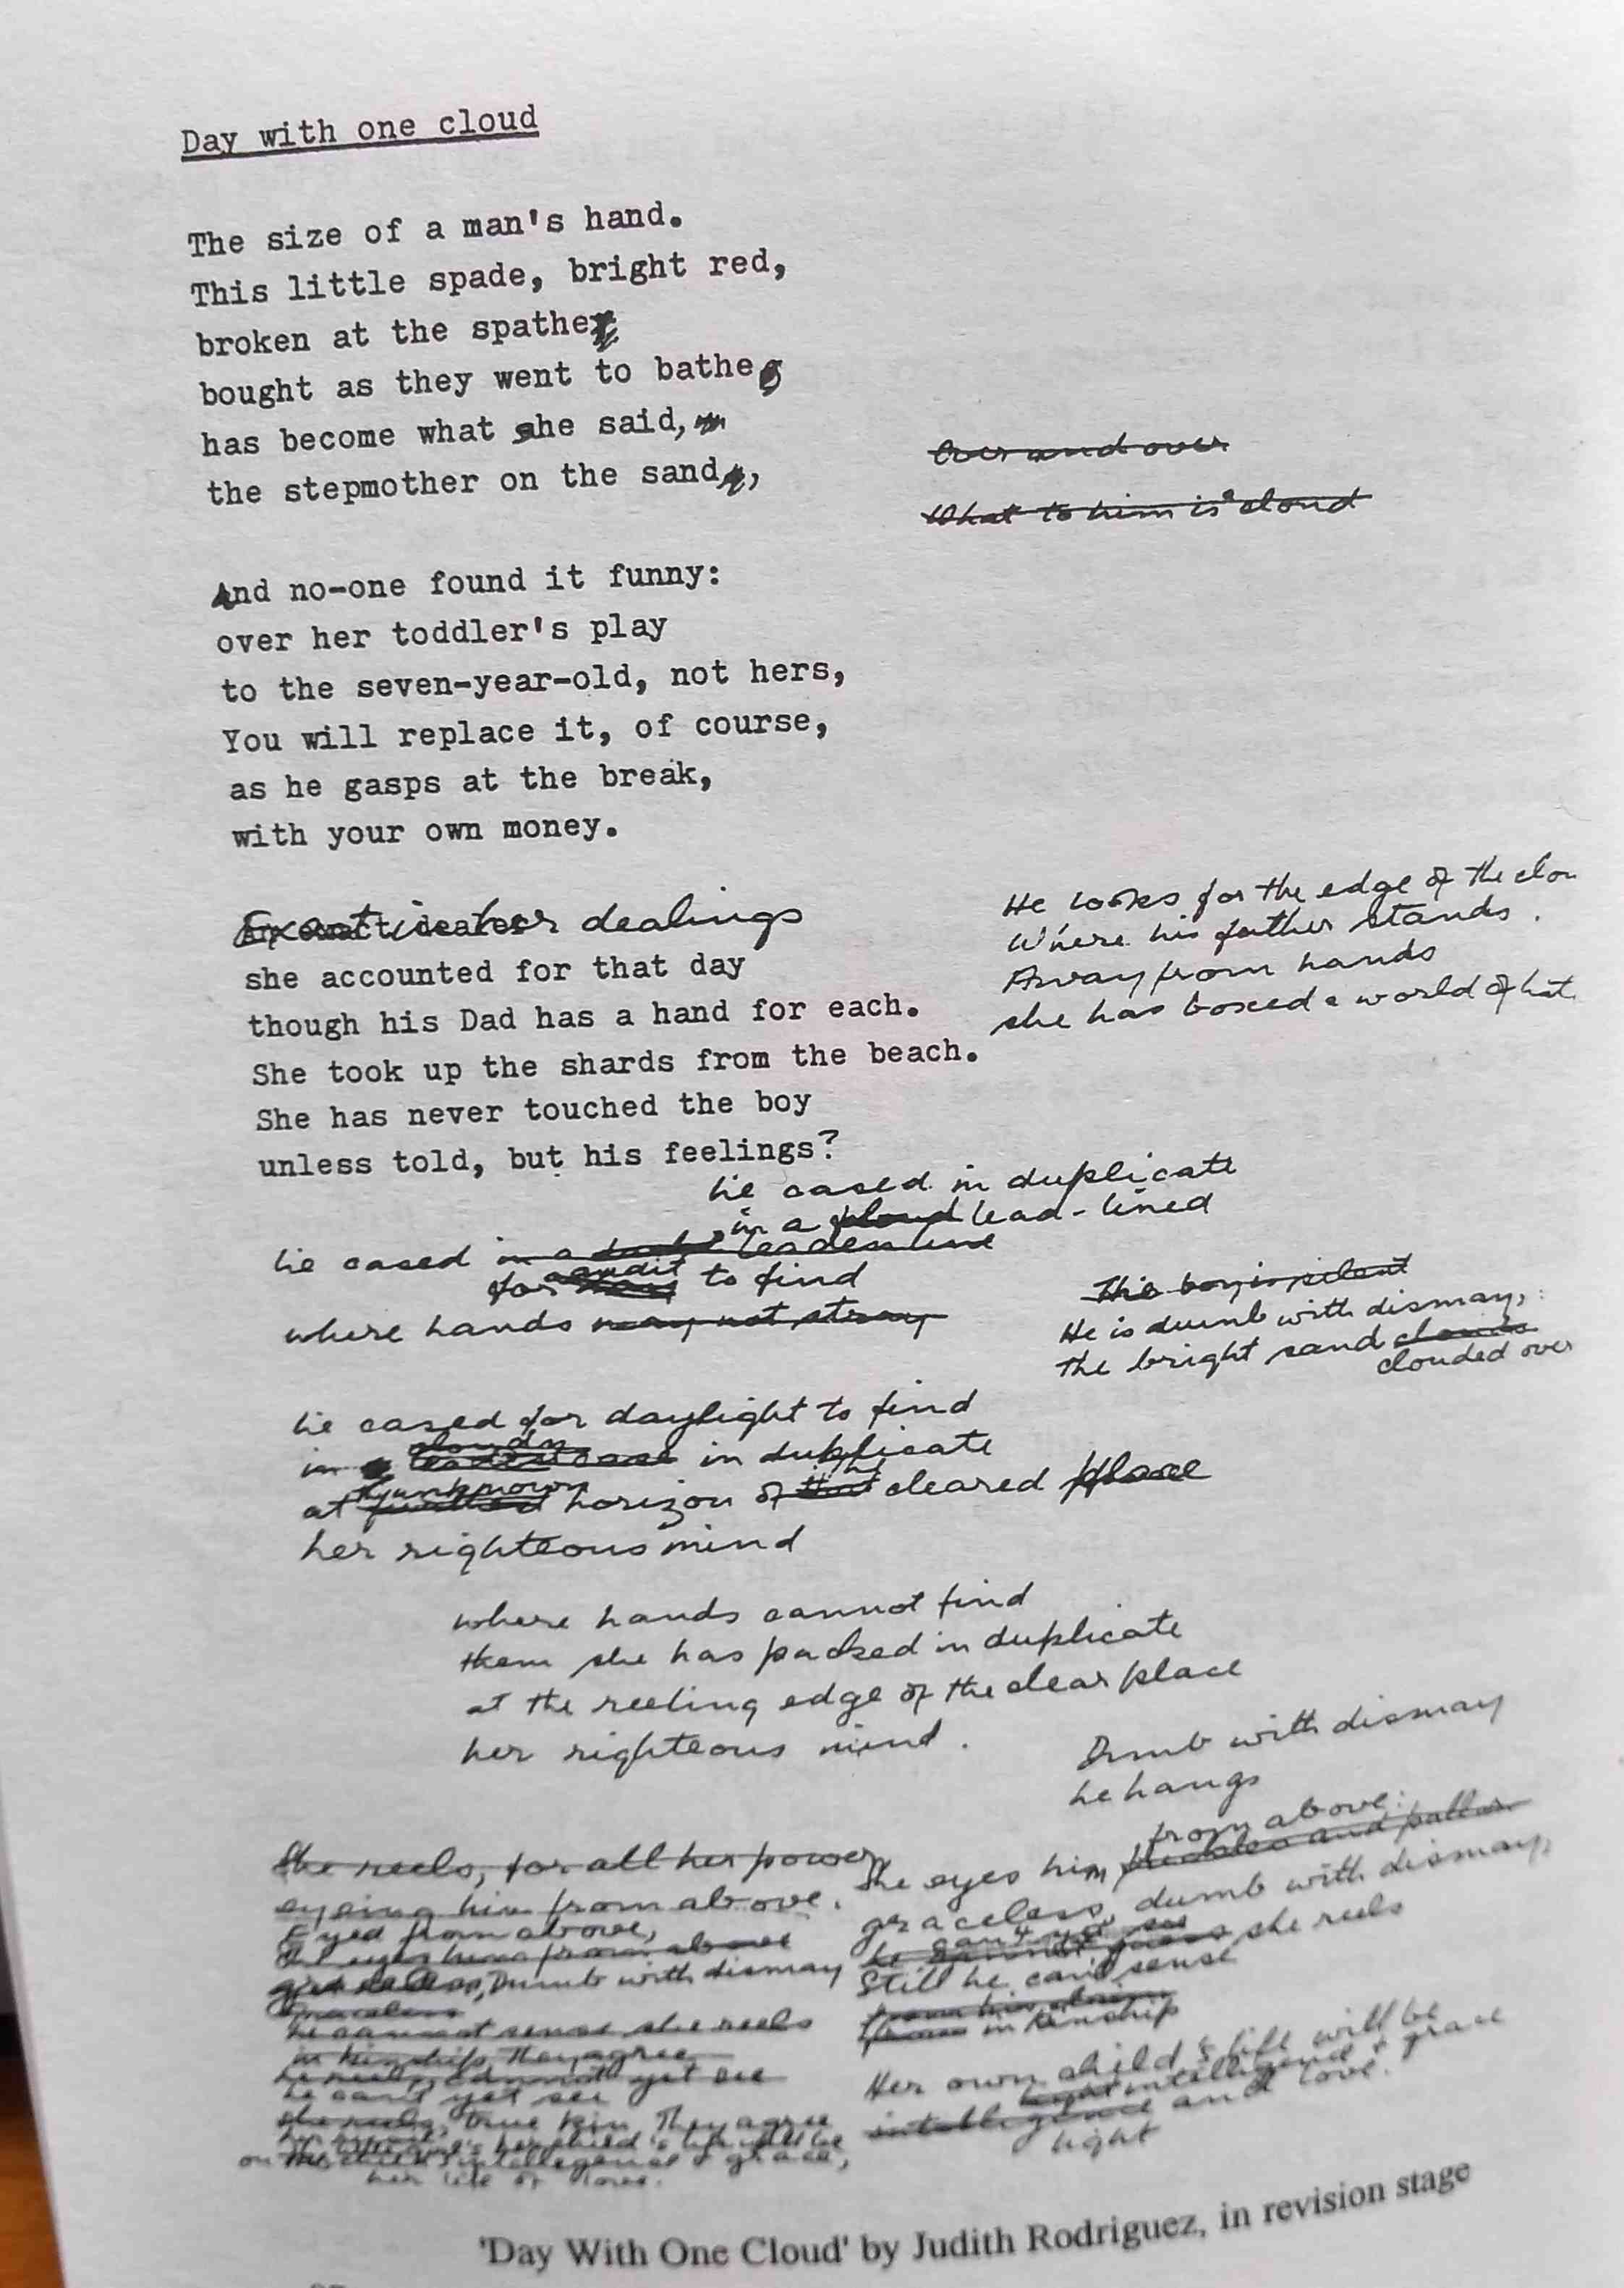 Day with one cloud
The size of a man's hand.
This little spade, bright red,
broken at the spathe
bought as they went to bathe
has become what she said,
the stepmother on the sand,
Over and over
What to him is a cloud
And no-one found it funny:
over her toddler's play
to the seven-year-old, not hers,
You will replace it, of course,
as he gasps at the break,
with your own money.
Exact in her dealings
she accounted for that day
though his Dad has a hand for each.
She took up the shards from the beach.
She has never touched the boy
unless told, but his feelings?
He looks for the edge of the clou
Where his father stands.
Away from hands
she has boxed a world of hat
lie cased in duplicate
in a cloud lead-lined
lie cased in a dark leaden
for audit to find
where hands may not stray
The boy is silent
He is dumb with dismay,
the bright sand clouds
clouded over
lie cased for daylight to find
cloudy
in a leaden case in duplicate
unknown the
at horizon of that cleared place
her righteous mind
where hands cannot find
them she has packed in duplicate
at the reeling edge of the clear place
her righteous mind.
Dumb with dismay
he hangs
She reels, for all her power,
eyeing him from above.
Eyed from above,
eyes him from above
graceless, Dumb with dismay
Graceless
he cannot sense she reels
in kinship. They agree
he cannot yet see
he can't yet see
she reels, true kin. They agree
her child's life will be
on intelligence & grace,
her life of love.
from above:
She eyes him and pallor
graceless, dumb with dismay,
can't yet see
he cannot guess she reels
Still he can't sense
from in kinship
Her own child's life will be
light intelligence & grace
intelligence and love.
light
'Day With One Cloud' by Judith Rodriguez, in revision stage